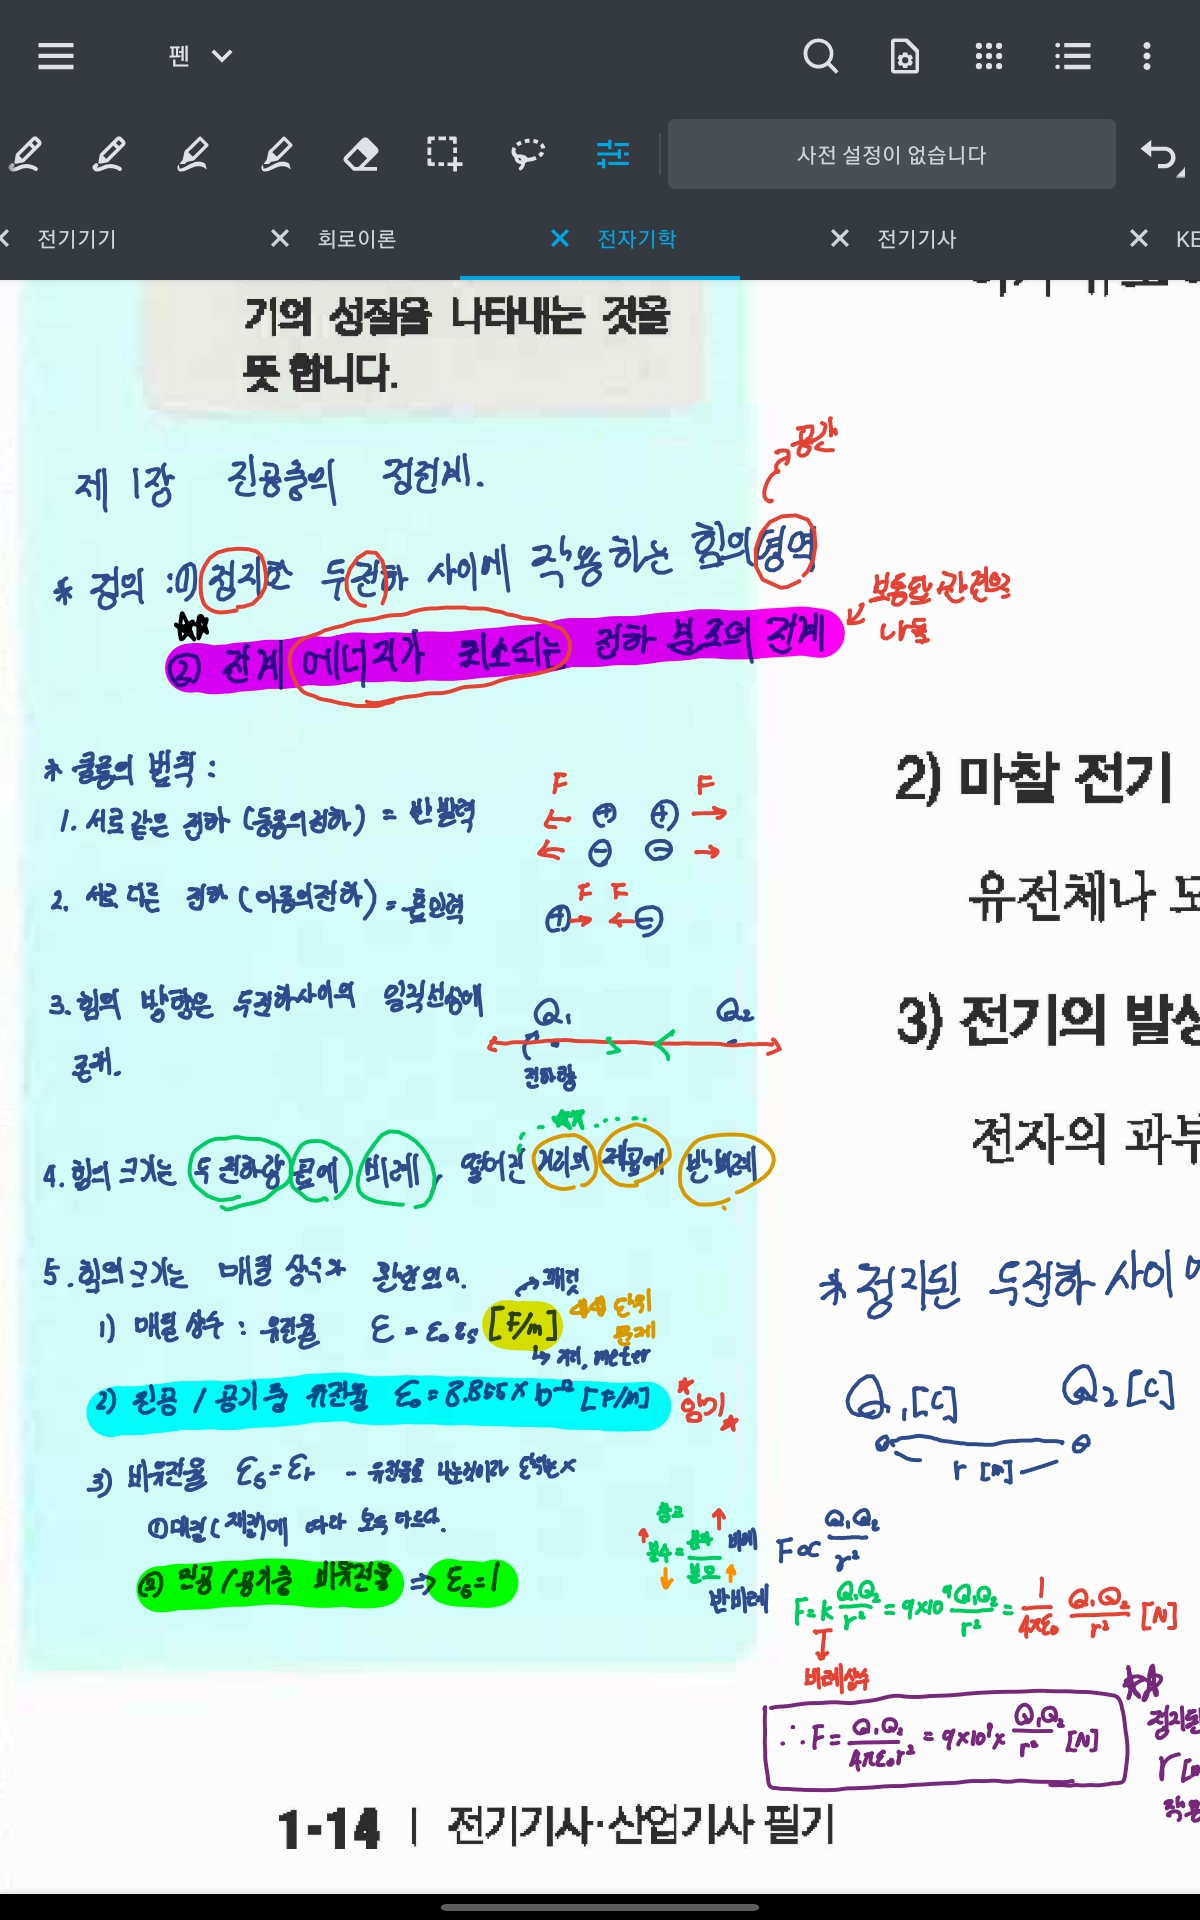 펜
사전 설정이 없습니다
전기기기
회로이론
전자기학
전기기사
KE
기의 성질을 나타내는 것을
뜻 합니다.
제 1장 진공중의 정전계.
공간
* 정의 : ① 정지한 두 전하 사이에 작용하는 힘의 영역
② 전계 에너지가 최소되는 전하 분포의 전계
나옴
* 쿨롱의 법칙 :
1. 서로 같은 전하 (동종의 전하) = 반발력
F F
⊕ ⊕
⊖ ⊖
2. 서로 다른 전하 (이종의 전하) = 흡인력
F F
⊕ ⊖
3. 힘의 방향은 두 전하 사이의 일직선상에
존재.
Q₁ Q₂
전하량
4. 힘의 크기는 두 전하량 곱에 비례, 떨어진 거리의 제곱에 반비례
5. 힘의 크기는 매질 상수와 관련있다.
1) 매질 상수 : 유전율 ε = ε₀ εs [F/m]
패럿
단위
문제
퍼, meter
2) 진공 / 공기중 유전율 ε₀ = 8.855 × 10⁻¹² [F/m]
암기
3) 비유전율 εs = εr
① 매질(재질)에 따라 모두 다르다.
② 진공/공기중 비유전율 ⇒ εs = 1
참고
분수 = 분자/분모 비례
반비례
2) 마찰 전기
유전체나
3) 전기의 발상
전자의 과부
* 정지된 두 전하 사이에
Q₁[C] Q₂[C]
r [m]
F ∝ Q₁Q₂/r²
F = k Q₁Q₂/r² = 9×10⁹ Q₁Q₂/r² = 1/4πε₀ Q₁Q₂/r² [N]
비례상수
∴ F = Q₁Q₂/4πε₀r² = 9×10⁹ × Q₁Q₂/r² [N]
정지된
r [m
작용
1-14 | 전기기사·산업기사 필기